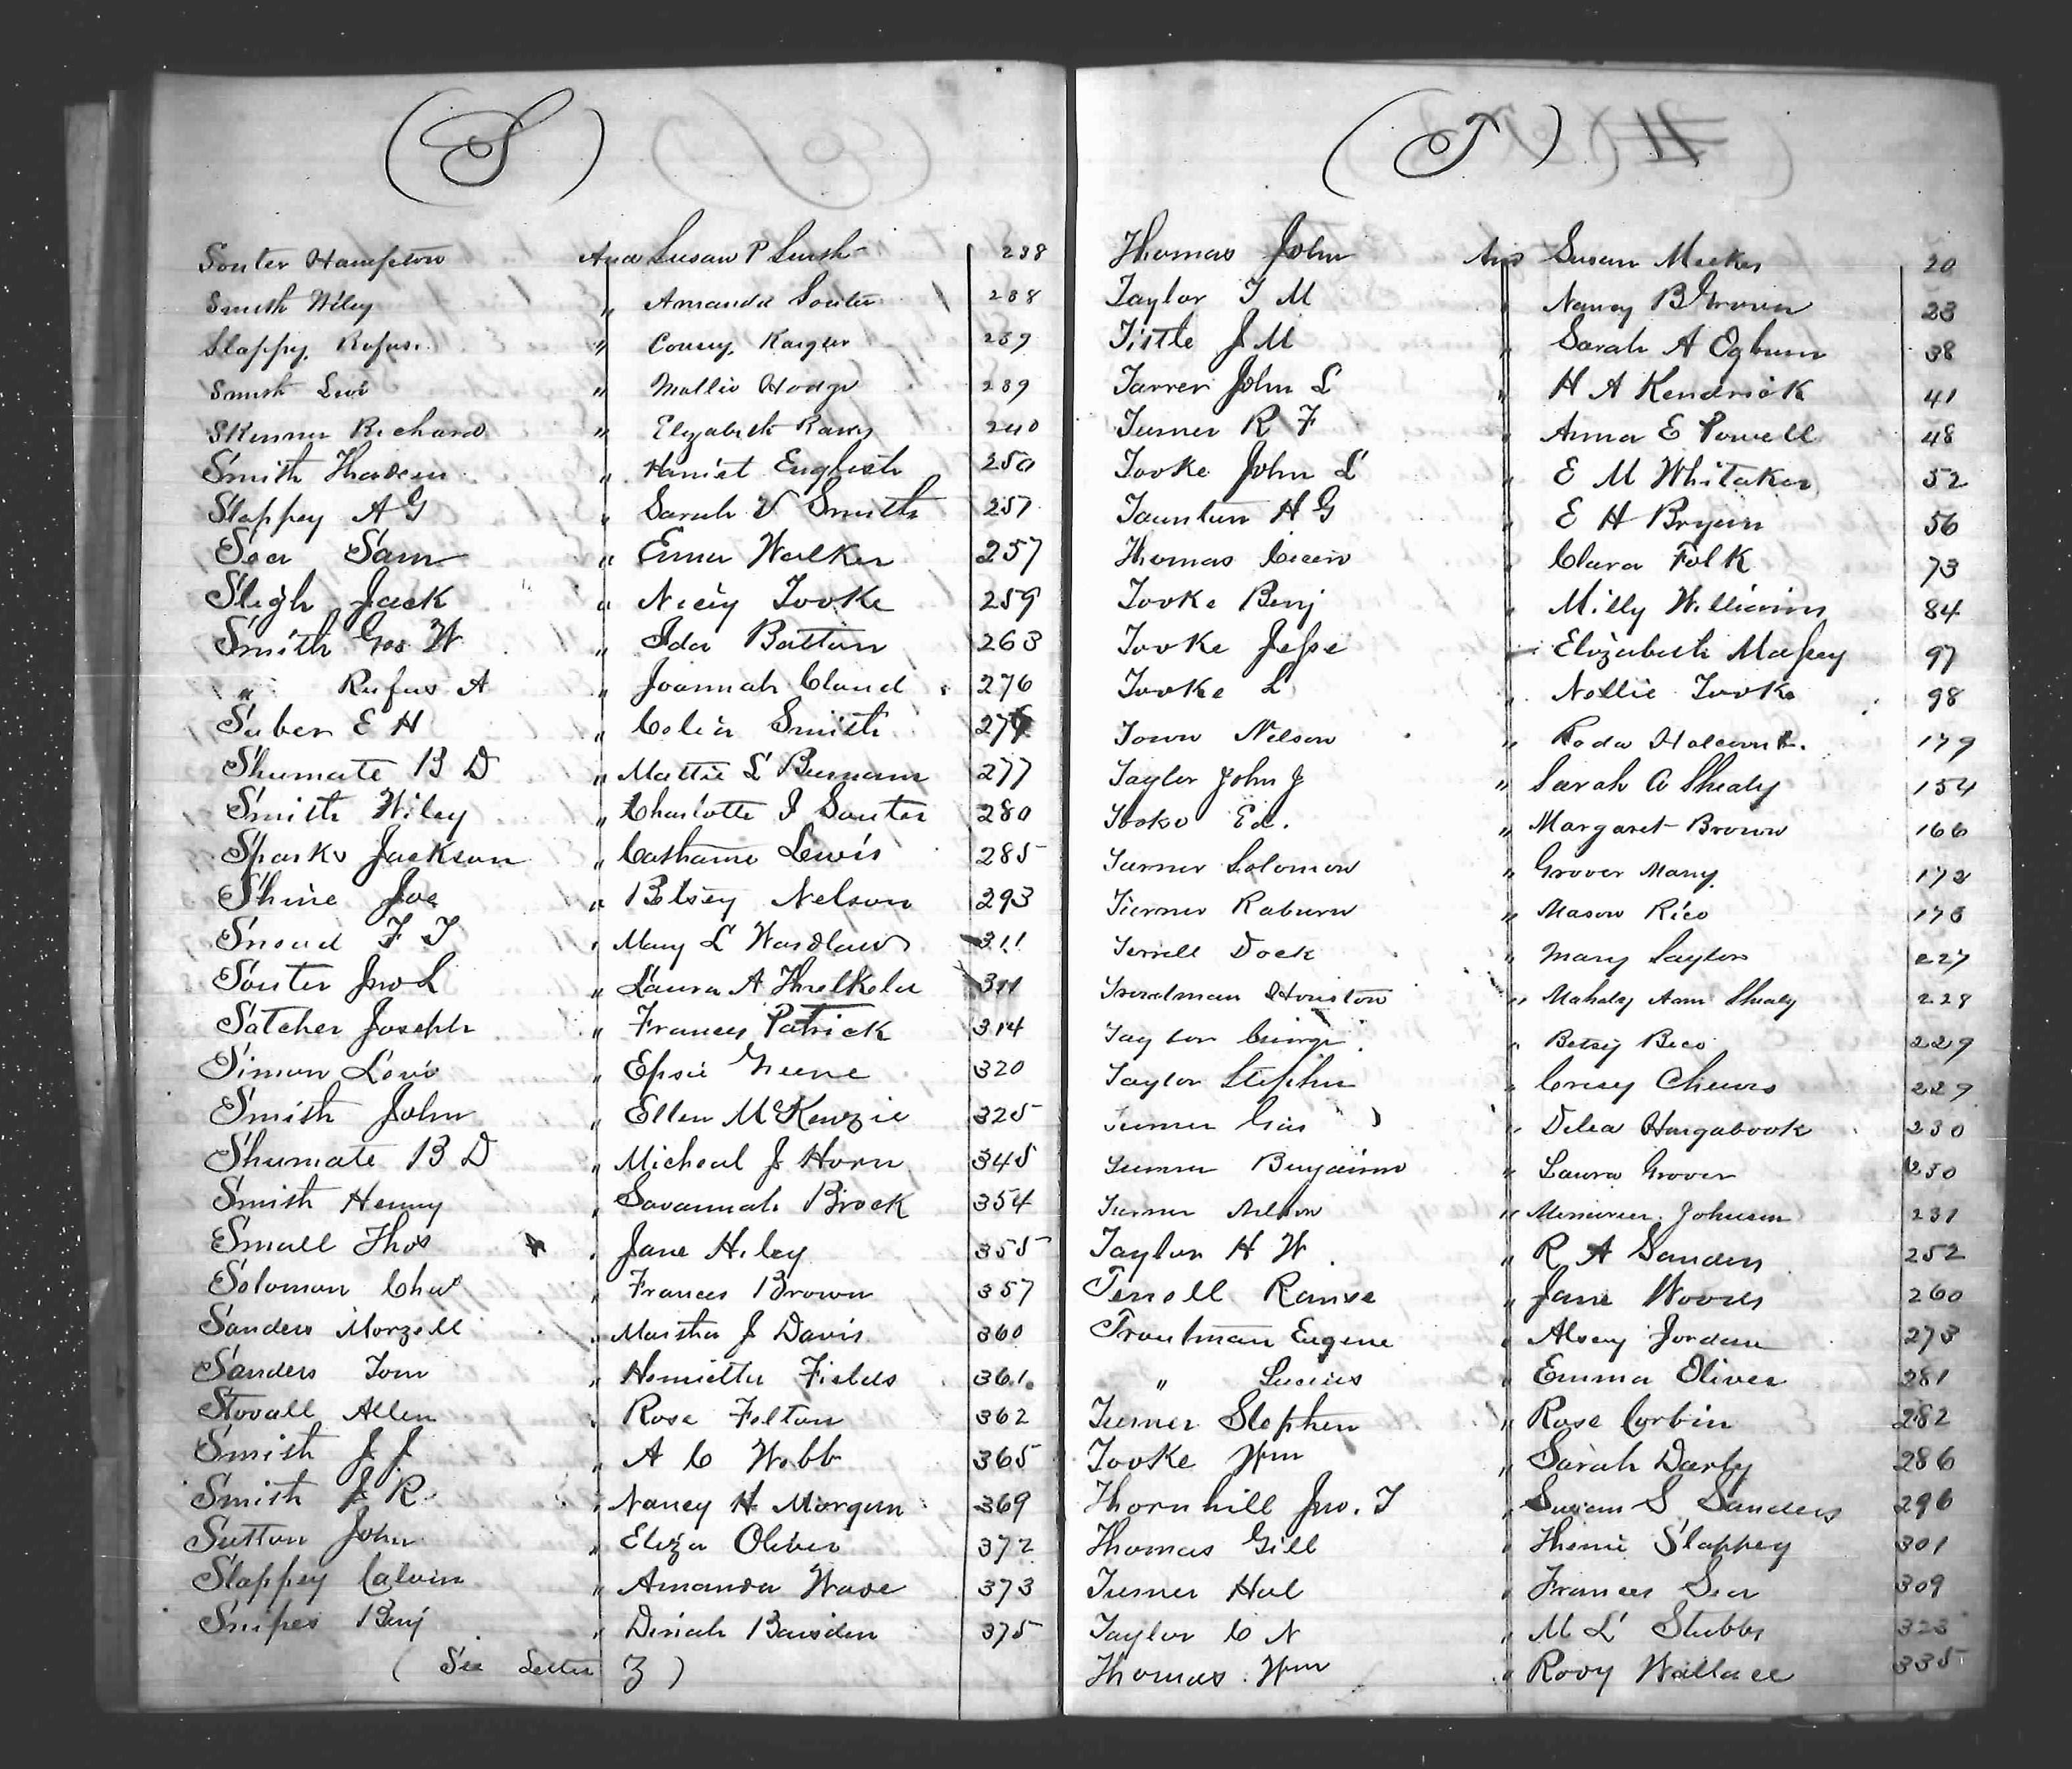 (S)
Souter Hampton And Susan P Lursh 238
Smith Wiley " Amanda Souter 238
Slappy Rufus " 239
Smith Levi " Mollie Hodge 239
Skinner Richard " Elizabeth 240
Smith " Harriet English 250
Slappey A G " Sarah V Smith 257
Sea Sam " Emma Walker 257
Sleigh Jack " Nicey Tooke 259
Smith Geo W " Ida Batton 263
" Rufus A " Joannah Cloud 276
Suber E H " Celia Smith
Shumate B D " Mattie L 277
Smith Wiley " Charlotte J Souter 280
Sparks Jackson " Catharine Lewis 285
Shine Joe " Betsey Nelson 293
Snead F T " Mary L Wardlaw 311
Souter Jno L " Laura A Threlkeld 311
Satcher Joseph " Frances Patrick 314
Simon Levi " Epsie Greene 320
Smith John " Ellen McKenzie 325
Shumate B D " Micheal J Horn 345
Smith Henry " Savannah Brock 354
Small Thos " Jane Hiley 355
Solomon Chas " Frances Brown 357
Sanders Morzell " Martha J Davis 360
Sanders Tom " Henrietta Fields 361
Stovall Allen " Rose Felton 362
Smith J J " A C Webb 365
Smith J R " Nancy H Morgan 369
Sutton John " Eliza Oliver 372
Slappey Calvin " Amanda Wade 373
Snipes Benj " Dinah 375
(See Letter Z)
(T)
Thomas John And Susan Meeks 20
Taylor T M " Nancy B Brown 23
Tittle J M " Sarah A Ogburn 38
Tarrer John L " H A Kendrick 41
Turner R F " Anna E Powell 48
Tooke John L " E M Whitaker 52
Taunton H G " E H Bryan 56
Thomas Cicero " Clara Folk 73
Tooke Benj " Milly Williams 84
Tooke Jesse " Elizabeth Massey 97
Tooke L " Nellie Tooke 98
Town Nelson " Roda 179
Taylor John J " Sarah A Shealy 154
Tooke Ed. " Margaret Brown 166
Turner Solomon " Grover Mary 172
Turner Raburn " Mason Rico 176
Terrell Dock " Mary Saylor 227
Troutman Houston " Mahaly Ann Shealy 228
Taylor George " Betsy 229
Taylor Stephen " Creasy 229
Turner Gus " Delea Hargabook 230
Turner Benjamin " Laura Grover 230
Turner Nelson " Johnson 231
Taylor H W " R A Sanders 252
Terrell Ranse " Jane Woods 260
Troutman Eugene " Alsey Jordan 273
" Lucius " Emma Oliver 281
Turner Stephen " Rose Corbin 282
Tooke Wm " Sarah Darby 286
Thornhill Jno. T " Susan S Sanders 296
Thomas Gill " Slappey 301
Turner Hal " Frances Sea 309
Taylor C N " M L Stubbs 323
Thomas Wm " Roxy Wallace 335